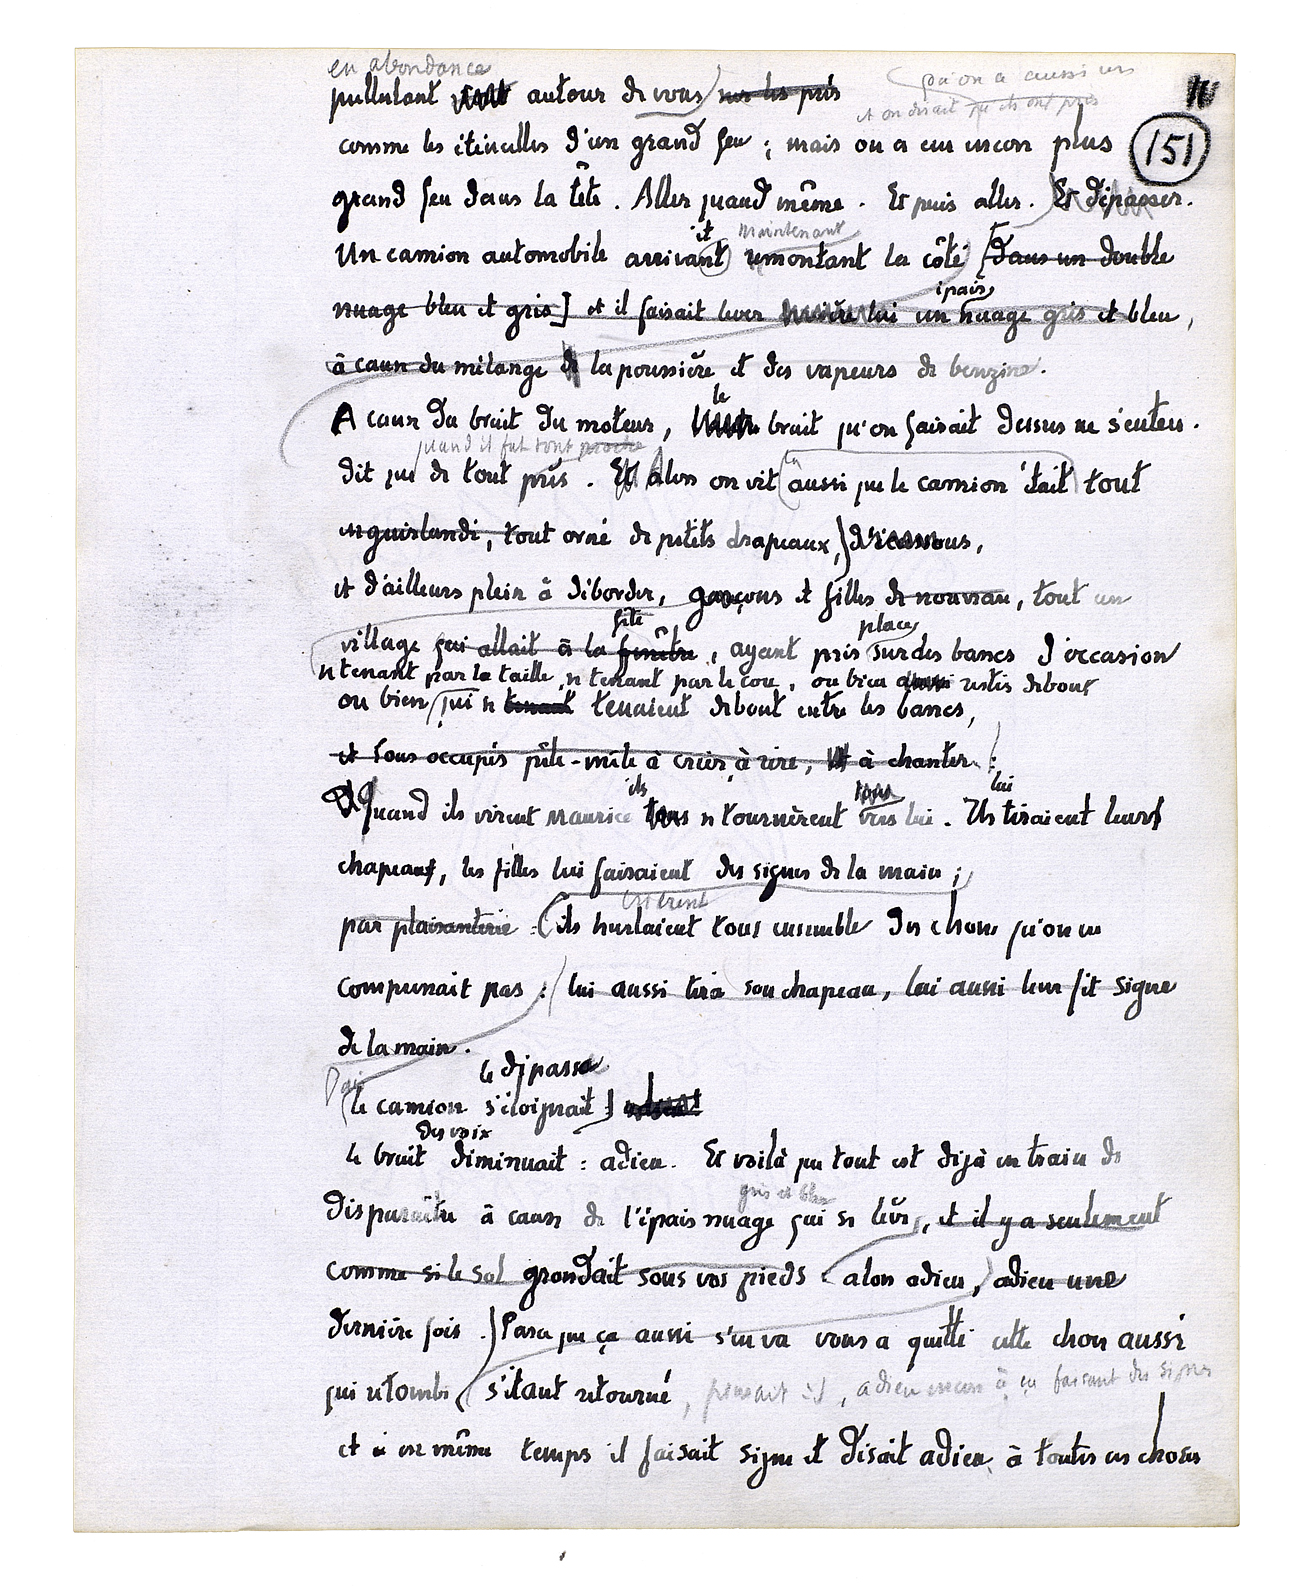 en abondance
pullulant autour de vous sur les prés
qu'on a aussi un
et on dirait qu'ils ont pris
151
comme les étincelles d'un grand feu ; mais on a eu encore plus
grand feu dans la tête. Aller quand même. Et puis aller. Et dépasser.
et maintenant
Un camion automobile arrivant remontant la côté [dans un double
épais
nuage bleu et gris] et il faisait lever derrière lui un nuage gris et bleu,
à cause du mélange de la poussière et des vapeurs de benzine.
le
A cause du bruit du moteur, bruit qu'on faisait dessus ne s'enten-
quand il fut tout proche
dit que de tout près. Et alors on vit aussi que le camion était tout
enguirlandé, tout orné de petits drapeaux,
et d'ailleurs plein à déborder, garçons et filles de nouveau, tout un
fête place
village qui allait à la fenêtre, ayant pris sur des bancs d'occasion
se tenant par la taille, se tenant par le cou, ou bien restés debout
ou bien qui se tenant tenaient debout entre les bancs,
et tous occupés pêle-mêle à crier, à rire, et à chanter :
ils tous lui
Quand ils virent Maurice tous se tournèrent vers lui. Ils tiraient leurs
chapeaux, les filles lui faisaient des signes de la main ;
crièrent
par plaisanterie : ils hurlaient tous ensemble des choses qu'on ne
comprenait pas : lui aussi tira son chapeau, lui aussi leur fit signe
de la main.
le dépassa
Puis
le camion s'éloignait
des voix
le bruit diminuait : adieu. Et voilà que tout est déjà en train de
gris et bleu
disparaître à cause de l'épais nuage qui se lève, et il y a seulement
comme si le sol grondait sous vos pieds. alors adieu, adieu une
dernière fois. Parce que ça aussi s'en va vous a quitté cette chose aussi
qui retombe s'étant retourné, pensait-il, adieu encore à ça faisant des signes
et à en même temps il faisait signe et disait adieu à toutes ces choses